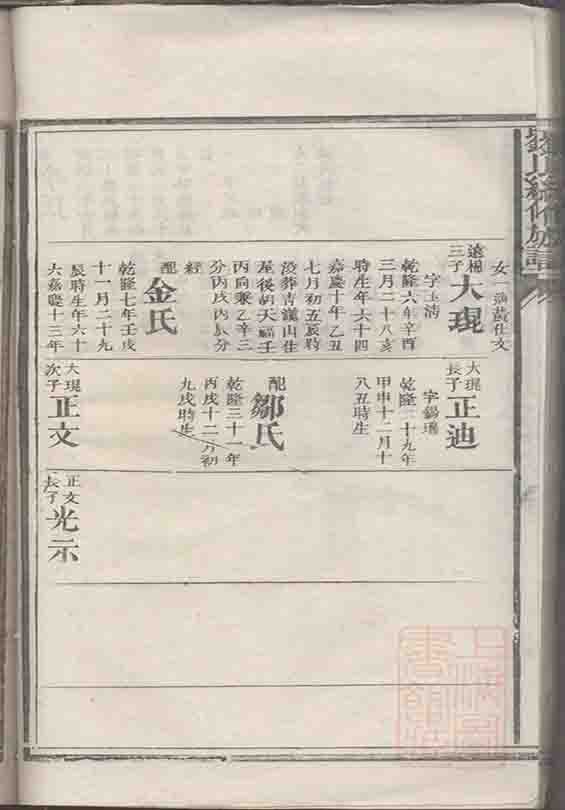 女一適黃仕文
遠楊三子
大現
字玉清
乾隆六年辛酉
三月二十八亥
時生年六十四
嘉慶十年乙丑
七月初五辰時
歿葬吉漢山生
屋後朝天福壬
丙向兼乙辛三
分丙戌丙辰分
經
配金氏
乾隆七年壬戌
十一月二十九
辰時生年六十
六嘉慶十三年
大現長子
正迪
字錫璠
乾隆二十九年
甲申十二月十
八丑時生
配鄒氏
乾隆三十一年
丙戌十二月初
九戌時生
大現次子
正文
正文長子
光示